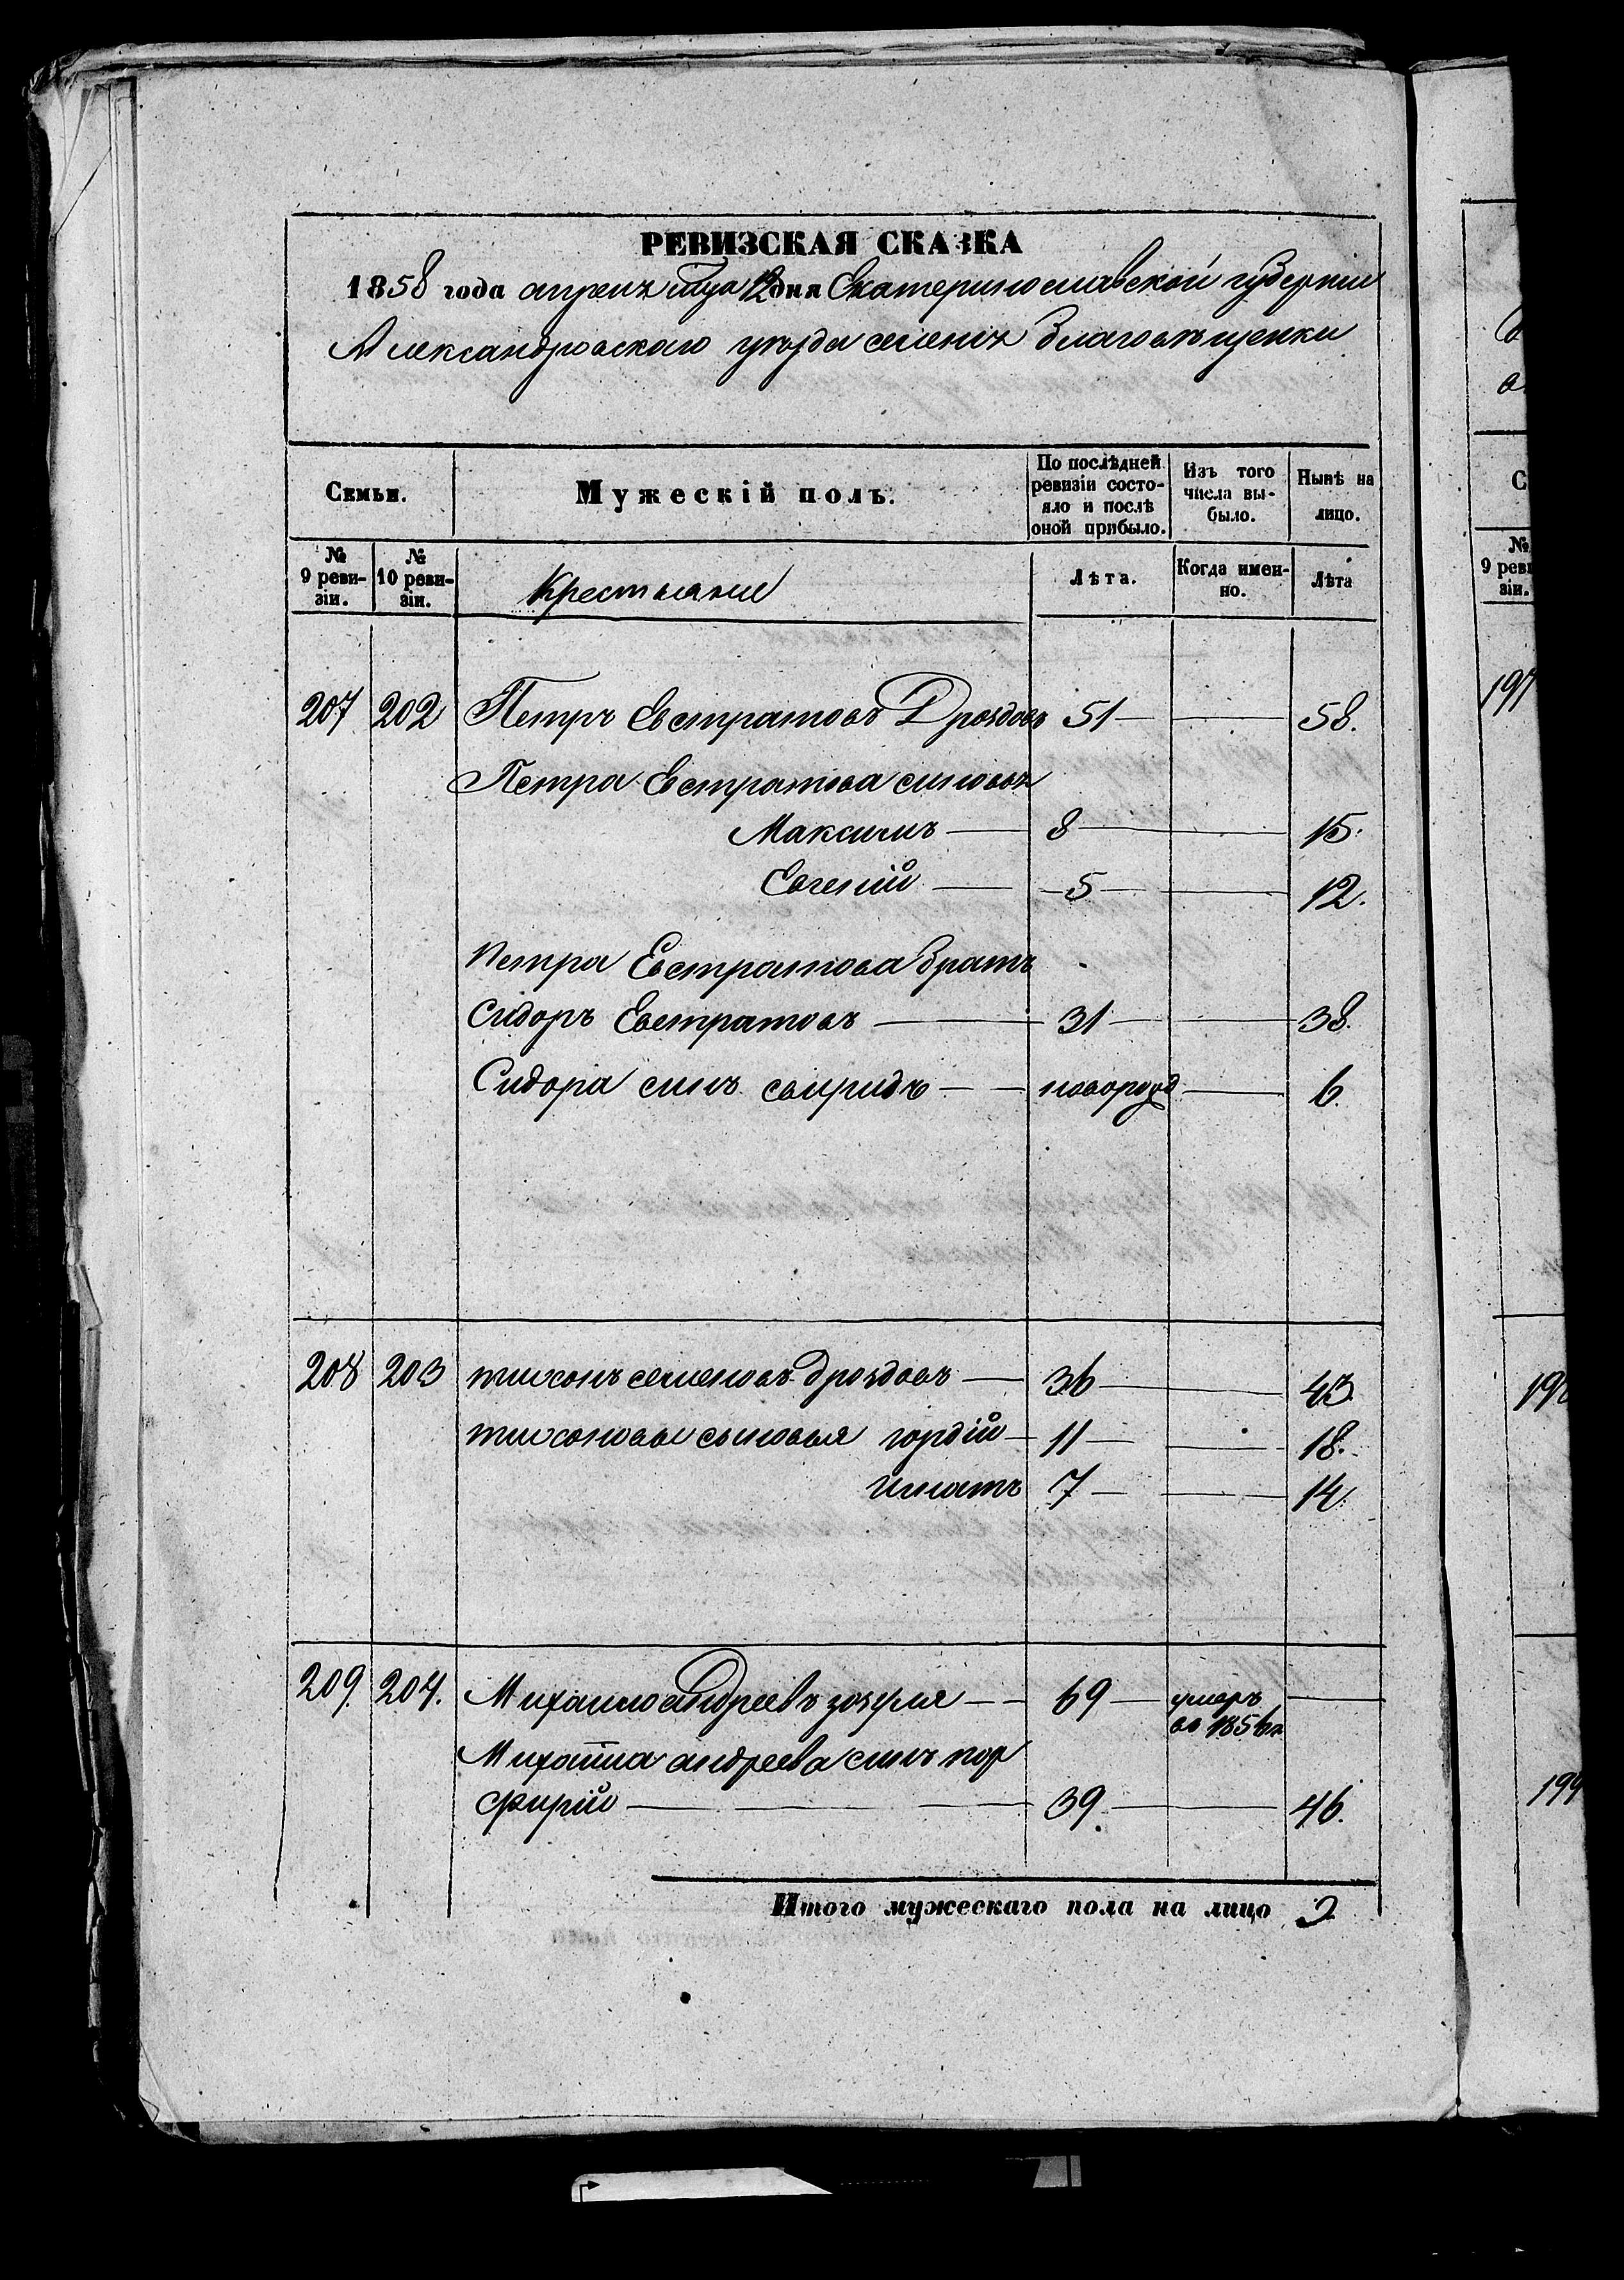 РЕВИЗСКАЯ СКАЗКА
1858 года апреля мца 12 дня Екатеринославской губерніи
Александровскаго уѣзда селенія Благовѣщенки
Семьи.
Мужескій полъ.
По послѣдней ревизіи состо-
яло и послѣ
оной прибыло.
Изъ того
числа вы-
было.
Нынѣ на
лицо.
№
9 реви-
зіи.
№
10 реви-
зіи.
Крестьяне
Лѣта.
Когда имен-
но.
Лѣта
207 202 Петръ Евстратовъ Дроздовъ 51 — — 58.
Петра Евстратова сыновья
Максимъ — 8 — — 15.
Евгеній — 5 — — 12.
Петра Евстратова братъ
Сидоръ Евстратовъ — 31 — — 38.
Сидора сынъ свиридъ — — новорожд — 6.
208 203 тихонъ семеновъ дроздовъ — 36 — — 43
тихоновы сыновья гордій — 11 — — 18.
игнатъ 7 — — 14
209. 204. Михайло андреевъ — — 69 — умеръ —
во 1856
Михайла андреева сынъ пор
фирій — — — 39. — — 46.
Итого мужескаго пола на лицо 9
С
№
9 реви
зіи.
197
198
199